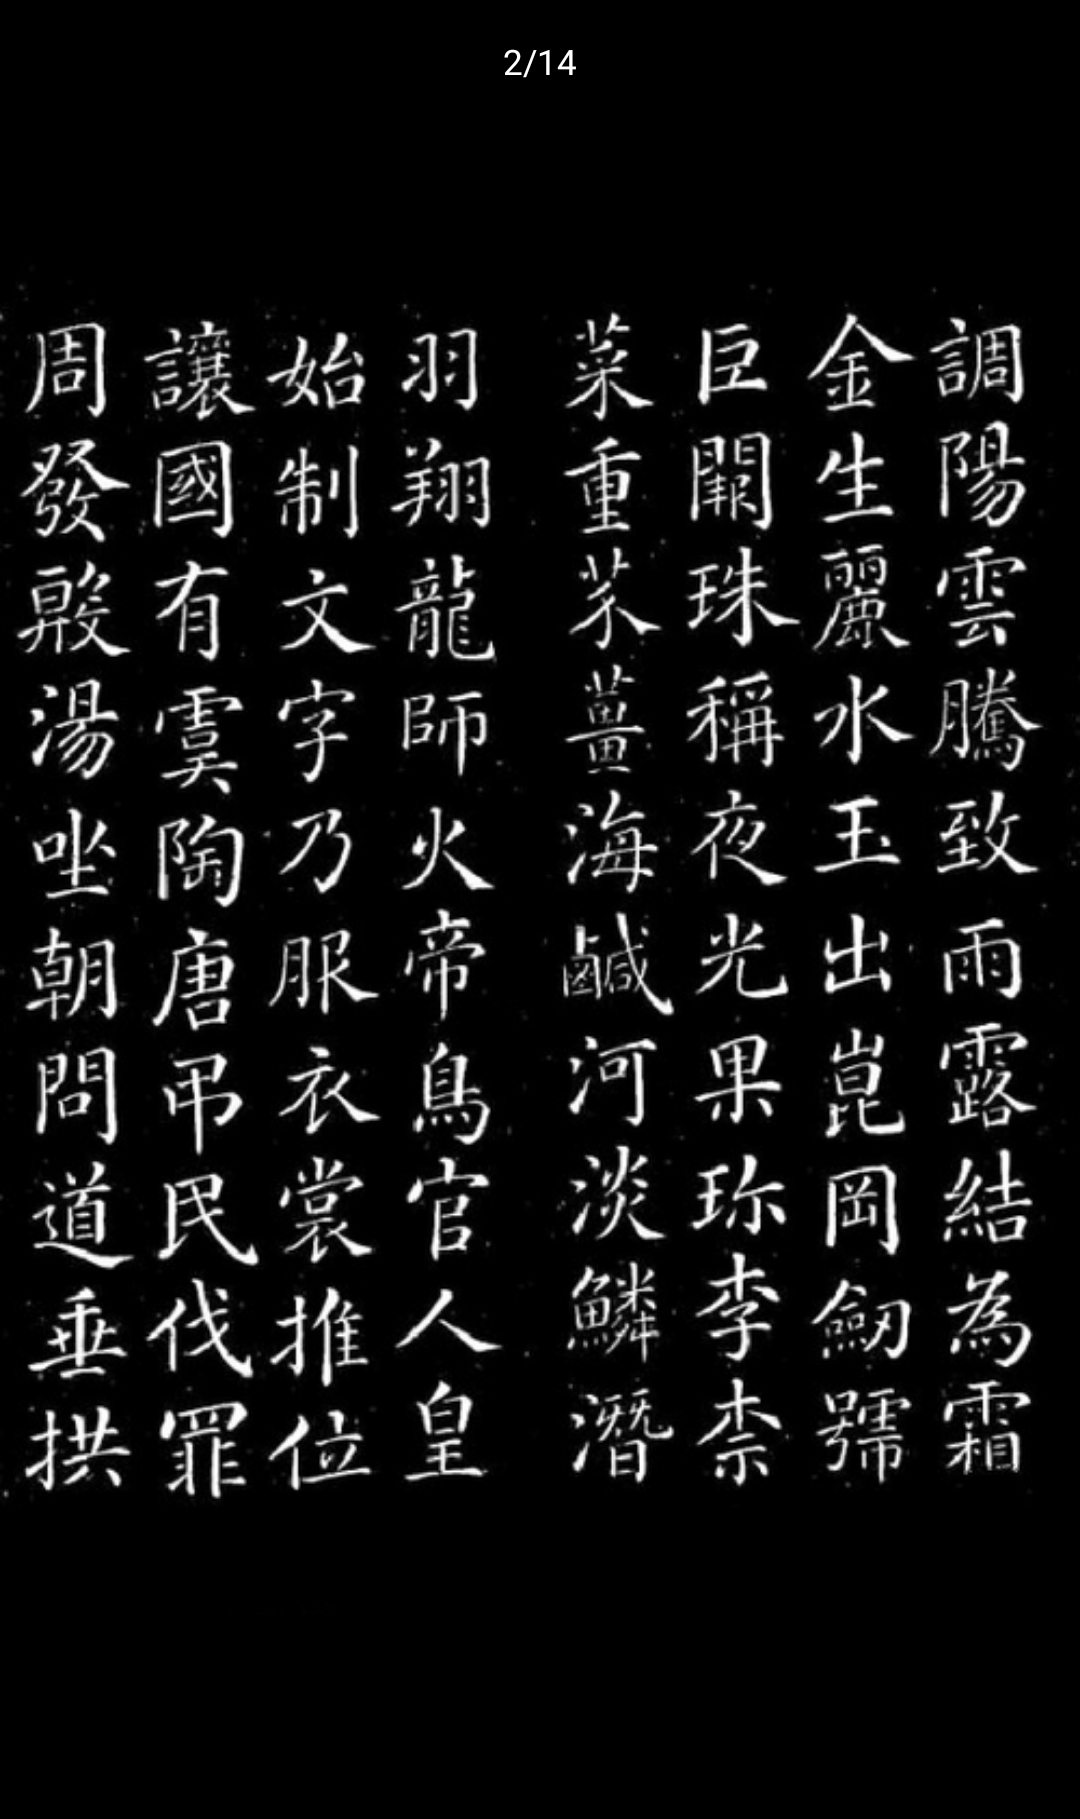 2/14
調陽雲騰致雨露結為霜
金生麗水玉出崑岡劒號
巨闕珠稱夜光果珎李柰
菜重芥薑海鹹河淡鱗潛
羽翔龍師火帝鳥官人皇
始制文字乃服衣裳推位
讓國有虞陶唐吊民伐罪
周發殷湯坐朝問道垂拱